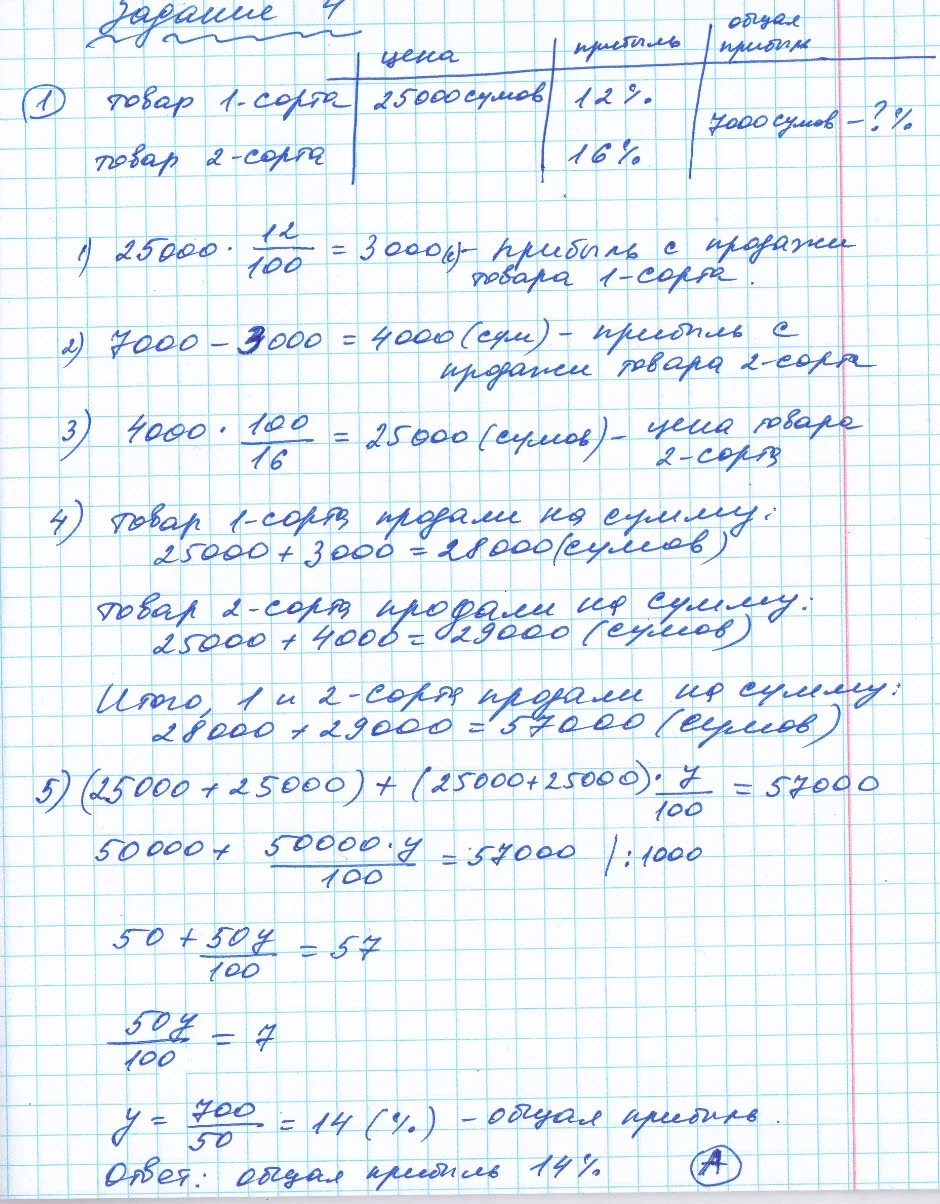 Задание 4
цена прибыль общая прибыль
① товар 1-сорта 25000 сумов 12%
7000 сумов - ? %
товар 2-сорта 16%
1) 25000 · 12/100 = 3000(с) - прибыль с продажи
товара 1-сорта.
2) 7000 - 3000 = 4000 (сум) - прибыль с
продажи товара 2-сорта
3) 4000 · 100/16 = 25000 (сумов) - цена товара
2-сорта
4) товар 1-сорта продали на сумму:
25000 + 3000 = 28000 (сумов)
товар 2-сорта продали на сумму:
25000 + 4000 = 29000 (сумов)
Итого, 1 и 2-сорта продали на сумму:
28000 + 29000 = 57000 (сумов)
5) (25000 + 25000) + (25000+25000) · y/100 = 57000
50000 + 50000·y/100 = 57000 | :1000
50 + 50y/100 = 57
50y/100 = 7
y = 700/50 = 14 (%) - общая прибыль.
Ответ: общая прибыль 14% Ⓐ